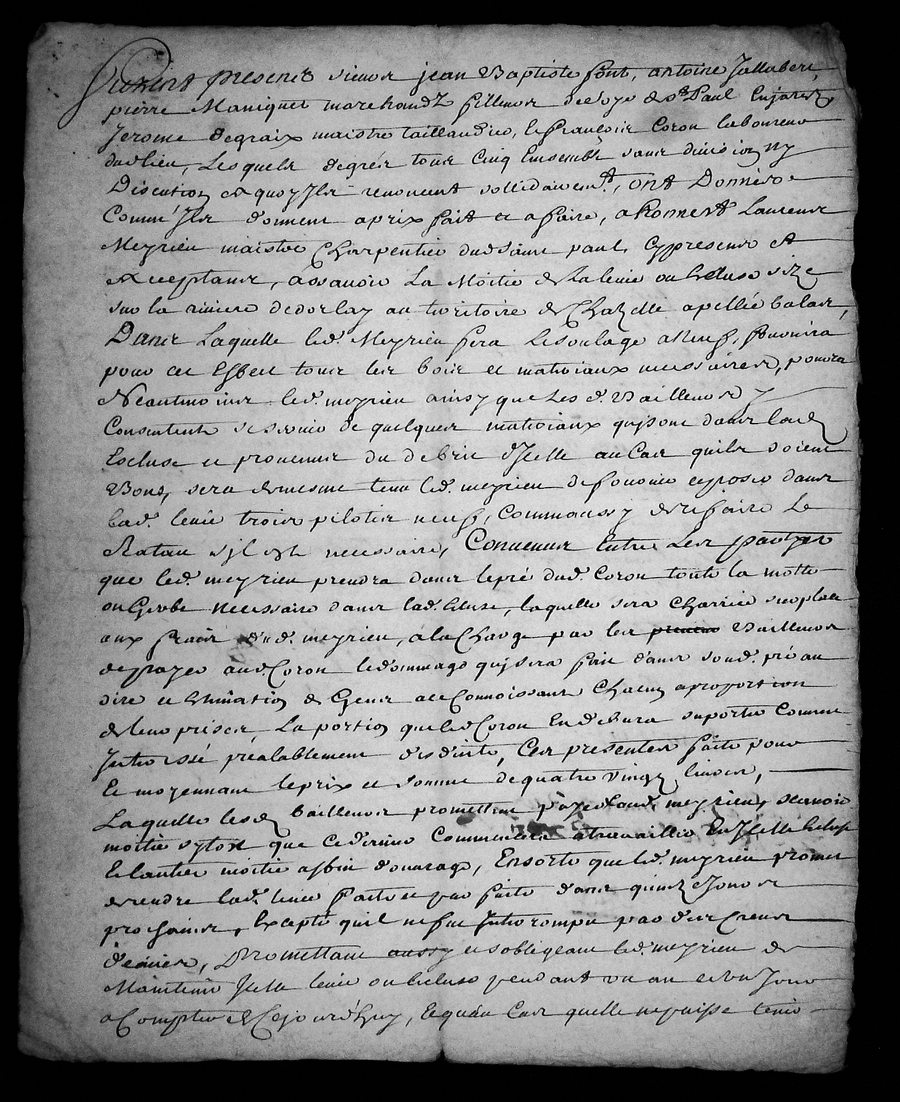 Furent presents sieurs jean Baptiste font, antoine Jallabert,
pierre Maniquet marchandz filleurs de soye de St. Paul Enjarest
Jerome degraix maistre taillandier, et françois Coron laboureur
dudlieu, Lesquels degrés tous Cinq Ensemble sans division ny
Discution a quoy Ils renoncent sollidairemt., ont Donnés
Comm'Ils donnent a prix fait et a faire, a honneste Laurens
Meyrieu maistre Charpentier dud saint paul Cy present et
acceptant, a scavoir La Moitié de la levée ou Ecluse size
sur la riviere de dorlay au territoire de Chazelle apellée balais,
Dans Laquelle led. Meyrieu fera le soulage a neuf, fournira
pour cet Effect tous les bois et materiaux necessaires, pourra
Neantmoins led. meyrieu ainsy que Les d. Bailleurs y
Consentent se servir de quelques materiaux qui sont dans lad.
Ecluse et provenus du debris d'Icelle au Cas quils soient
Bons, sera de mesme tenu led. meyrieu de fournir et poser dans
lad. levée trois pilotis neufs, Comm aussy de refaire Le
Ratau s'il est necessaire, Convenus Entre Les partyes
que led. meyrieu prendra dans le pré dud. Coron toute la motte
ou Gerbe necessaire dans lad. Ecluse, laquelle sera Charriée sur place
aux frais dud. meyrieu, a la Charge par les preneur Bailleurs
de payer aud. Coron le dommage qui sera fait dans sond. pré au
dire et Estimation de Gens a ce Connoissant Chacun a proportion
de leur prises, La portion que led Coron En debvra suporter Comme
Interessé prealablement distraite, Ces presentes faites pour
Et moyennant le prix et somme de quatre vingt livres,
Laquelle lesd. bailleurs promettent payer aud. meyrieu, scavoir
moitié sytost que ce dernier Commencera a travailler En Icelle Ecluse
Et lautre moitié a fin d'ouvrage, Ensorte que led. meyrieu promet
de rendre lad. levée faite et par faite dans quinze Jours
prochains, Excepté quil ne fut Interrompu par des Creues
d'eaues, Promettant aussy et sobligeant led. meyrieu de
Maintenir Icelle levée ou Ecluse pendant un an et un Jour
a Compter de Cejourd'huy, et quau Cas quelle ne puisse tenir